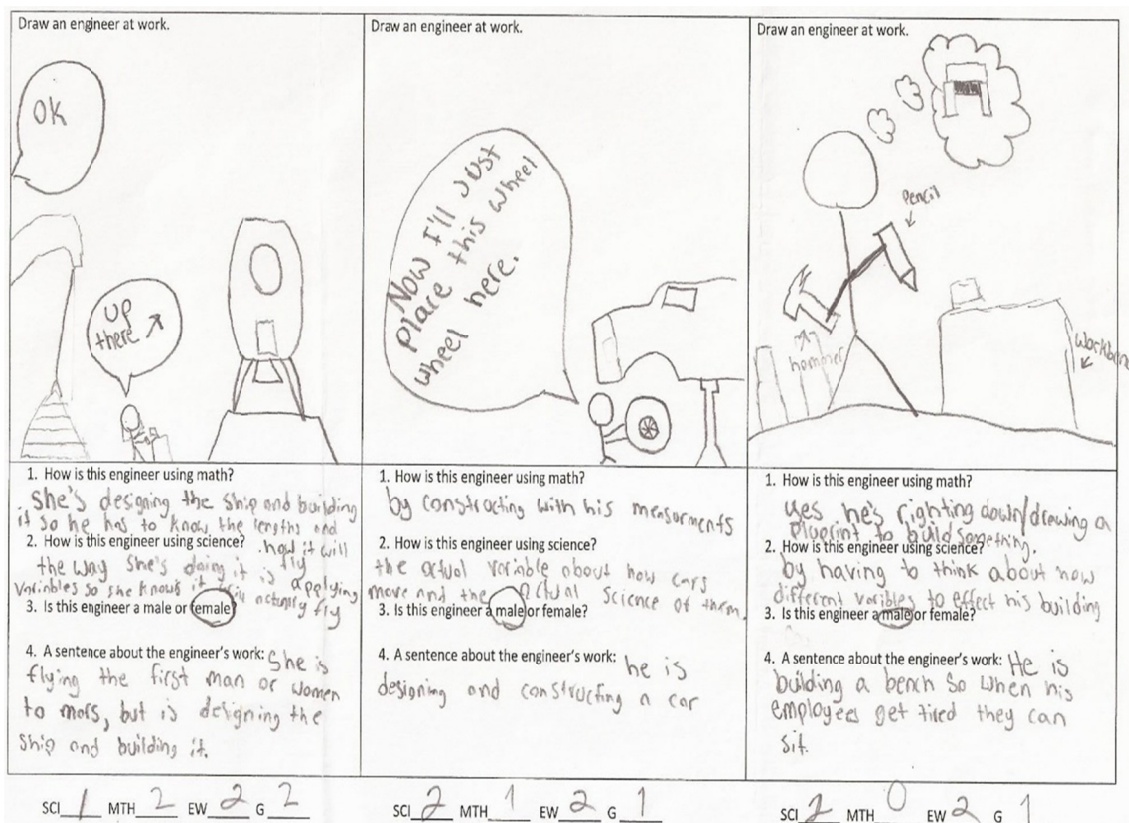 Draw an engineer at work.
OK
up
there ↗
1. How is this engineer using math?
She's designing the ship and building
it so he has to know the lengths and
2. How is this engineer using science? . how it will
fly
the way she's doing it is applying
variables so she knows it actually fly
3. Is this engineer a male or female?
4. A sentence about the engineer's work: She is
flying the first man or women
to mars, but is designing the
ship and building it.
SCI 1 MTH 2 EW 2 G 2
Draw an engineer at work.
Now I'll Just
place this wheel
wheel here.
1. How is this engineer using math?
by constracting with his mensurments
2. How is this engineer using science?
the actual variable about how cars
move and the actual science of them.
3. Is this engineer a male or female?
4. A sentence about the engineer's work: he is
designing and constructing a car
SCI 2 MTH 1 EW 2 G 1
Draw an engineer at work.
pencil
hammer
workben
1. How is this engineer using math?
yes he's righting down/drawing a
pluprint to build something.
2. How is this engineer using science?
by having to think about how
different varibles to effect his building
3. Is this engineer a male or female?
4. A sentence about the engineer's work: He is
building a bench so when his
employees get tired they can
sit.
SCI 2 MTH 0 EW 2 G 1